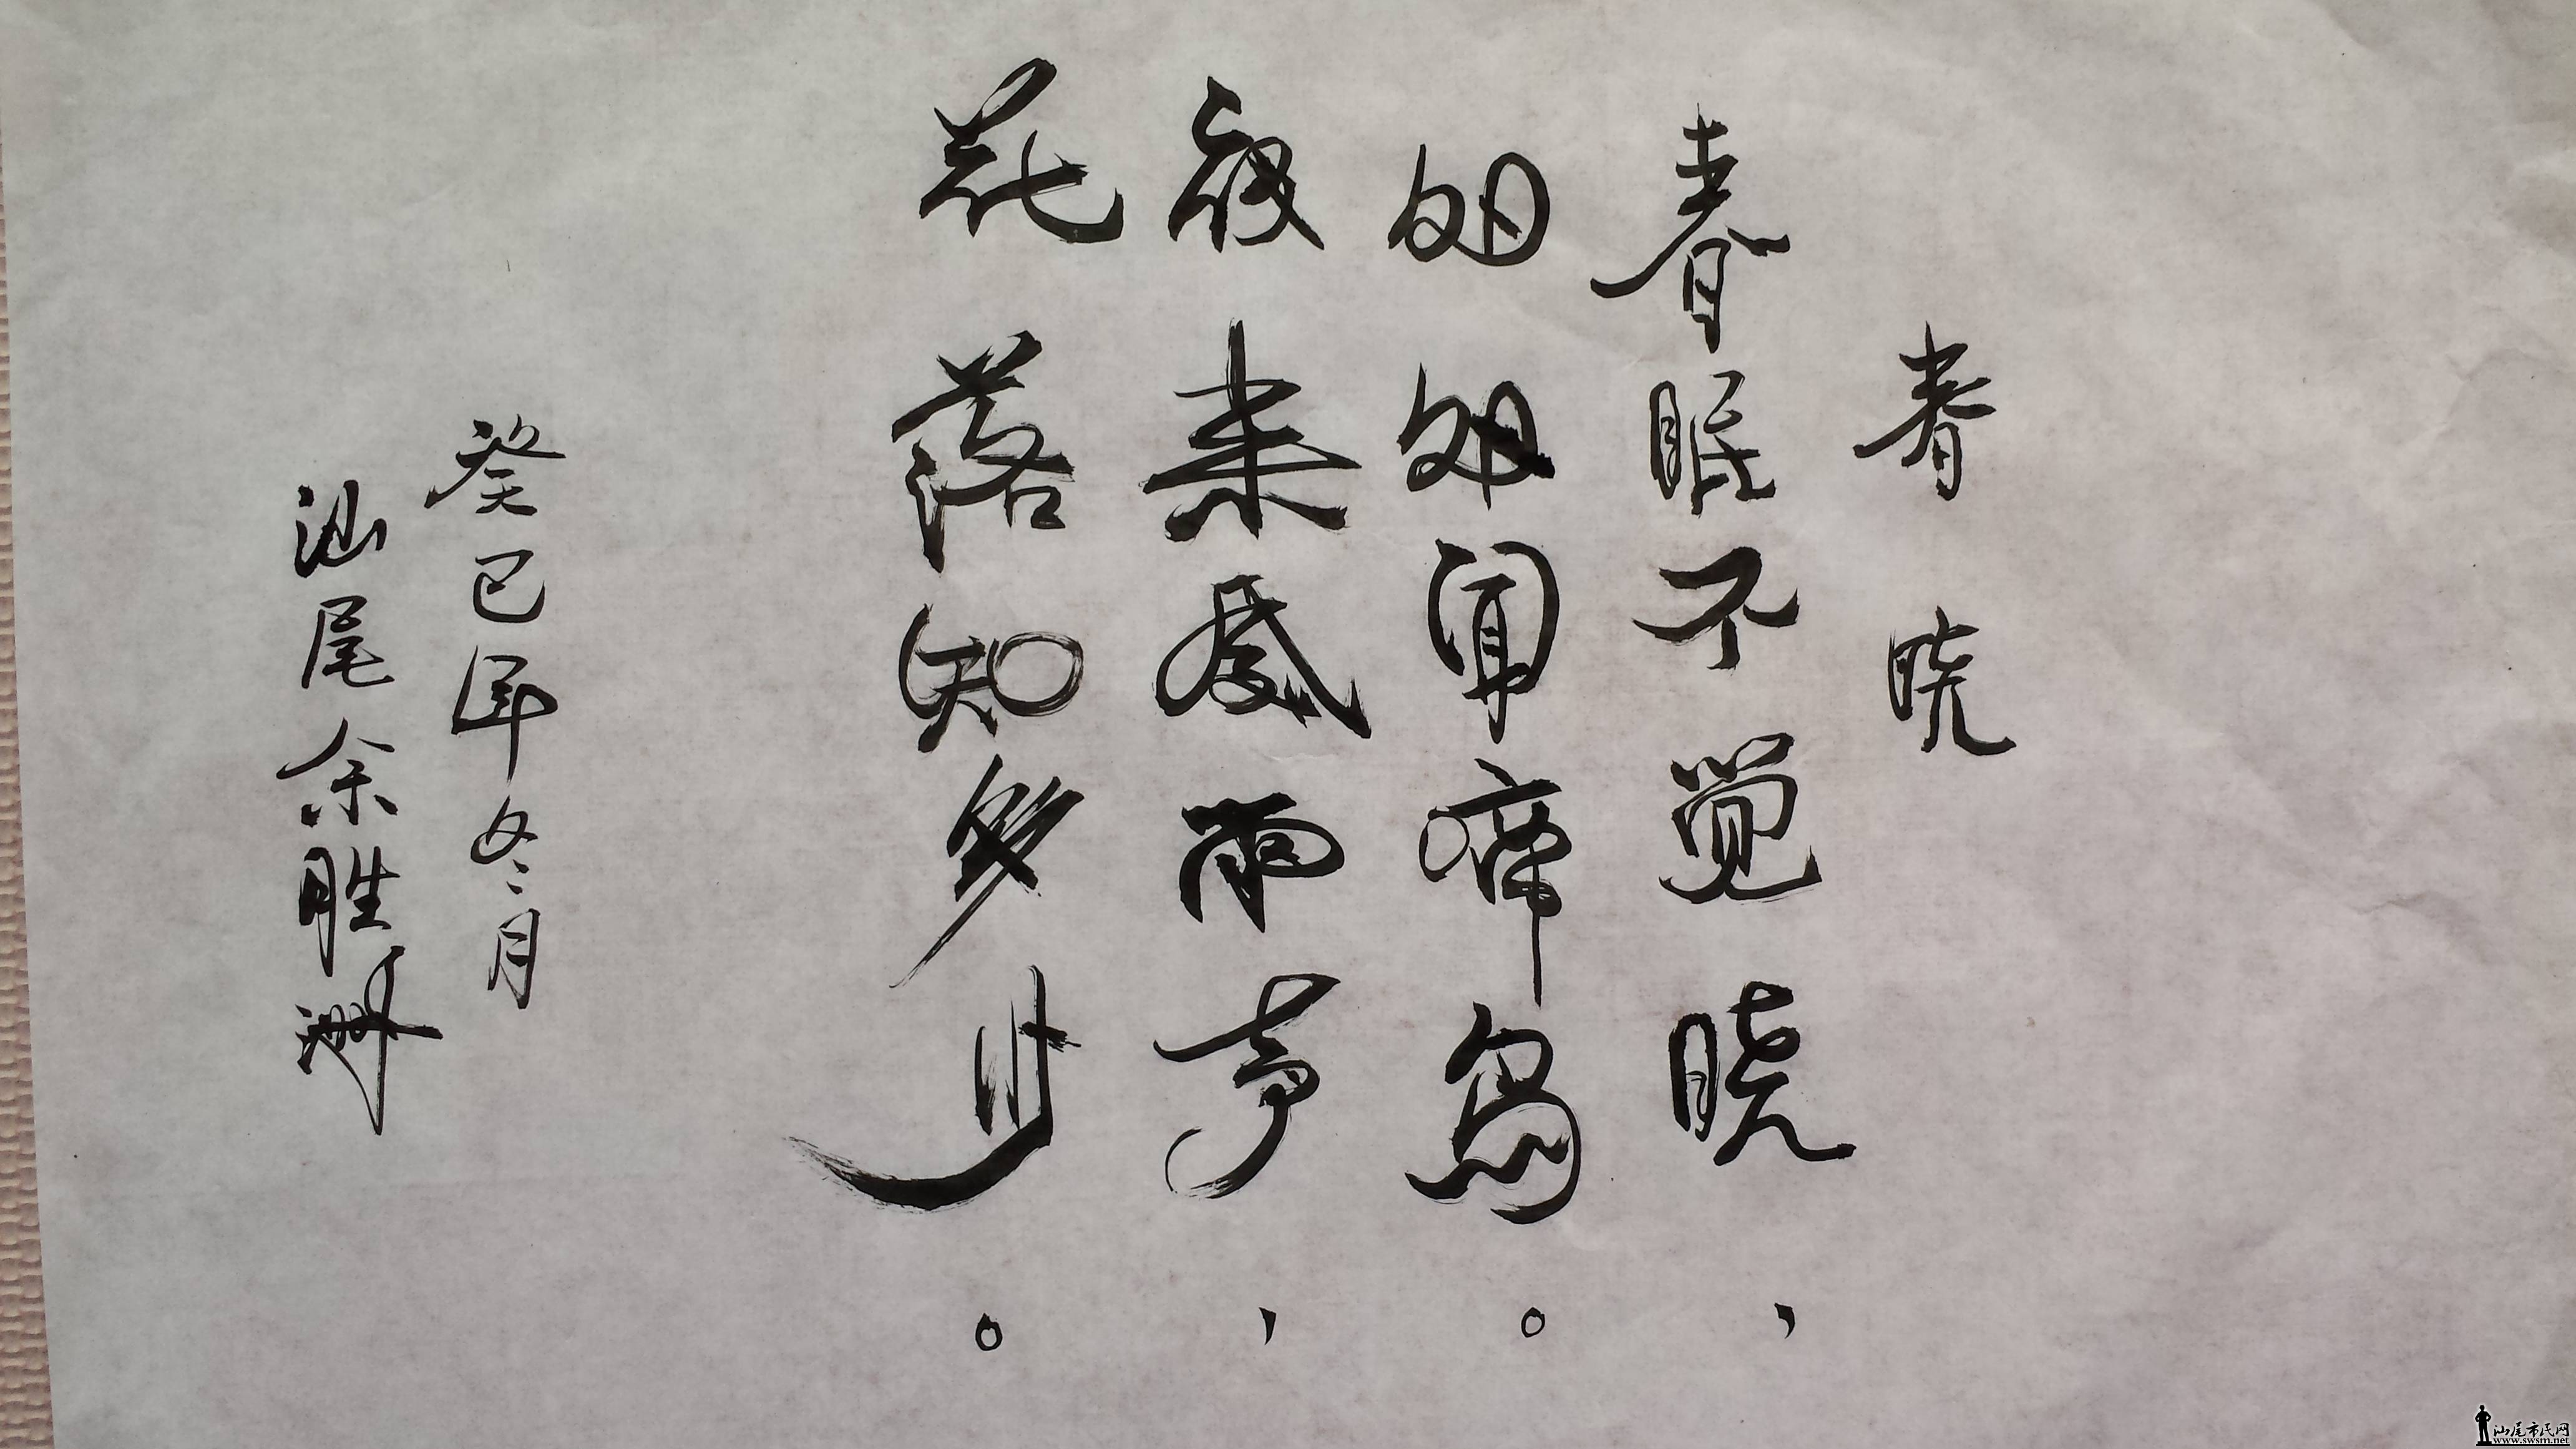 春晓
春眠不觉晓，
处处闻啼鸟。
夜来风雨声，
花落知多少。
癸巳年冬月
汕尾余胜
汕尾市民网
www.swsm.net